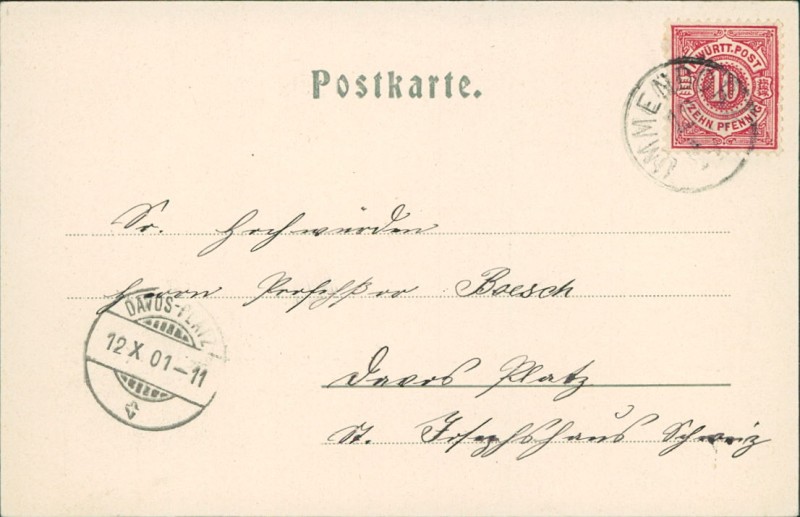 Postkarte.
K. WÜRTT. POST
10
ZEHN PFENNIG
Sr. Hochwürden
Herrn Professor Boesch
DAVOS-PLATZ
12 X 01-11
Davos Platz
St. Josephshaus Schweiz